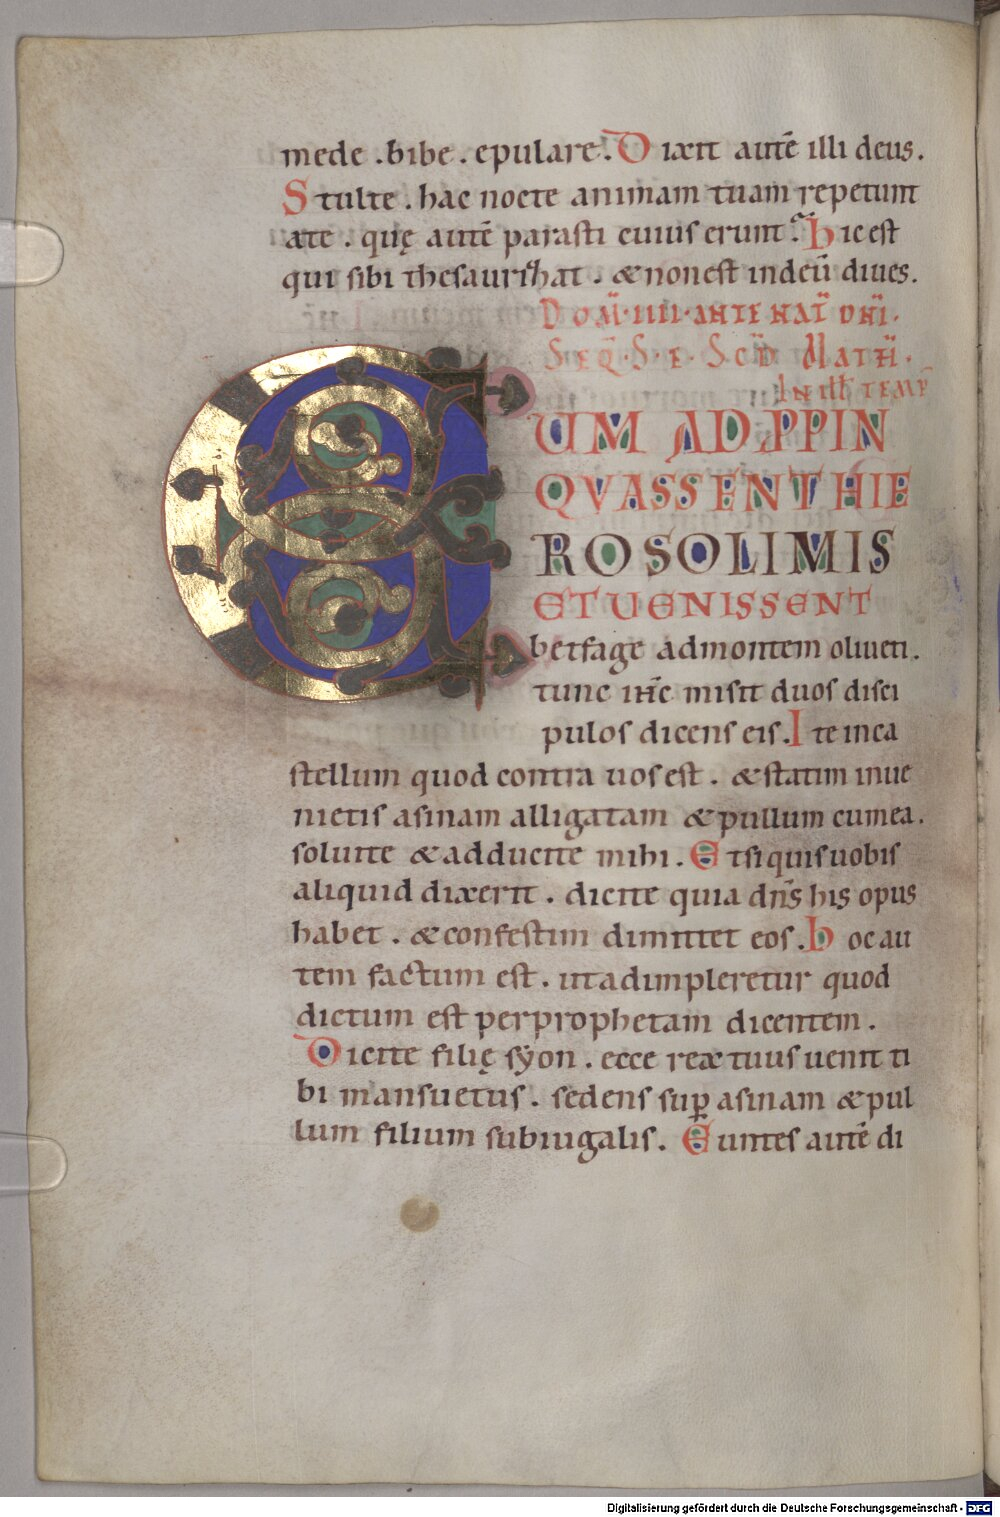 mede . bibe . epulare . Dixit autē illi deus .
Stulte . hac nocte animam tuam repetunt
a te . quę autē parasti cuius erunt ? Hic est
qui sibi thesaurizhat . & non est in deū diues .
DOM̄ · IIII · ANTE NAT̄ DN̄I .
SEQ̄ · S · E · SCD̄ MATH̄ .
IN ILL TEMP̄
CUM APPPIN
QVASSENT HIE
ROSOLIMIS
ET UENISSENT
betfage ad montem oliueti .
tunc ihc̄ misit duos disci
pulos dicens eis . Ite in ca
stellum quod contra uos est . & statim inue
nietis asinam alligatam & pullum cum ea .
soluite & adducite mihi . Et si quis uobis
aliquid dixerit . dicite quia dn̄s his opus
habet . & confestim dimittet eos . Hoc au
tem factum est . ut adimpleretur quod
dictum est per prophetam dicentem .
Dicite filię syon . ecce rex tuus uenit ti
bi mansuetus . sedens sup̱ asinam & pul
lum filium subiugalis . Euntes autē di
Digitalisierung gefördert durch die Deutsche Forschungsgemeinschaft - DFG